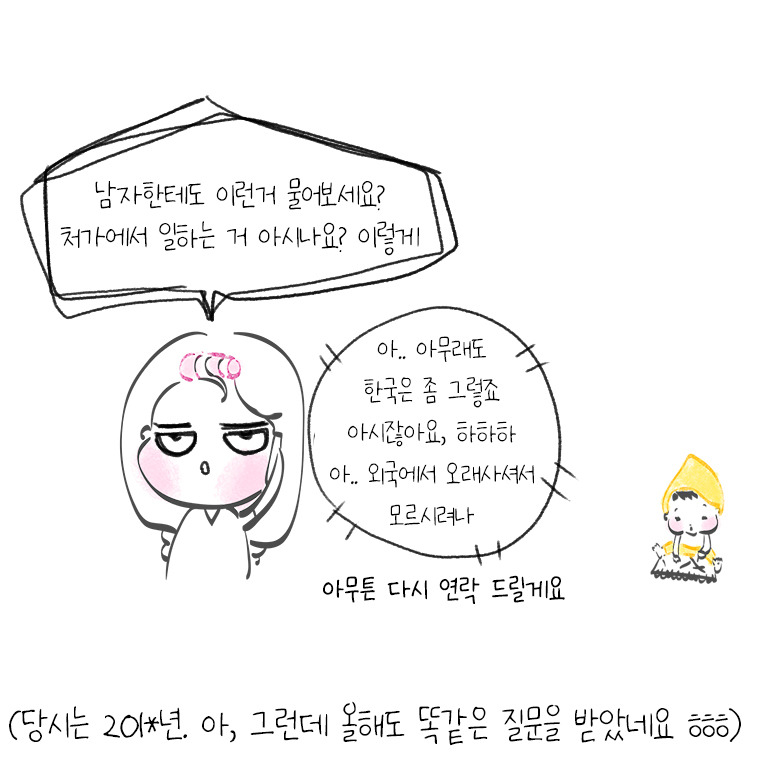 남자한테도 이런거 물어보세요?
처가에서 일하는 거 아시나요? 이렇게
아.. 아무래도
한국은 좀 그렇죠
아시잖아요, 하하하
아.. 외국에서 오래사셔서
모르시려나
아무튼 다시 연락 드릴게요
(당시는 201*년. 아, 그런데 올해도 똑같은 질문을 받았네요 ㅎㅎㅎ)